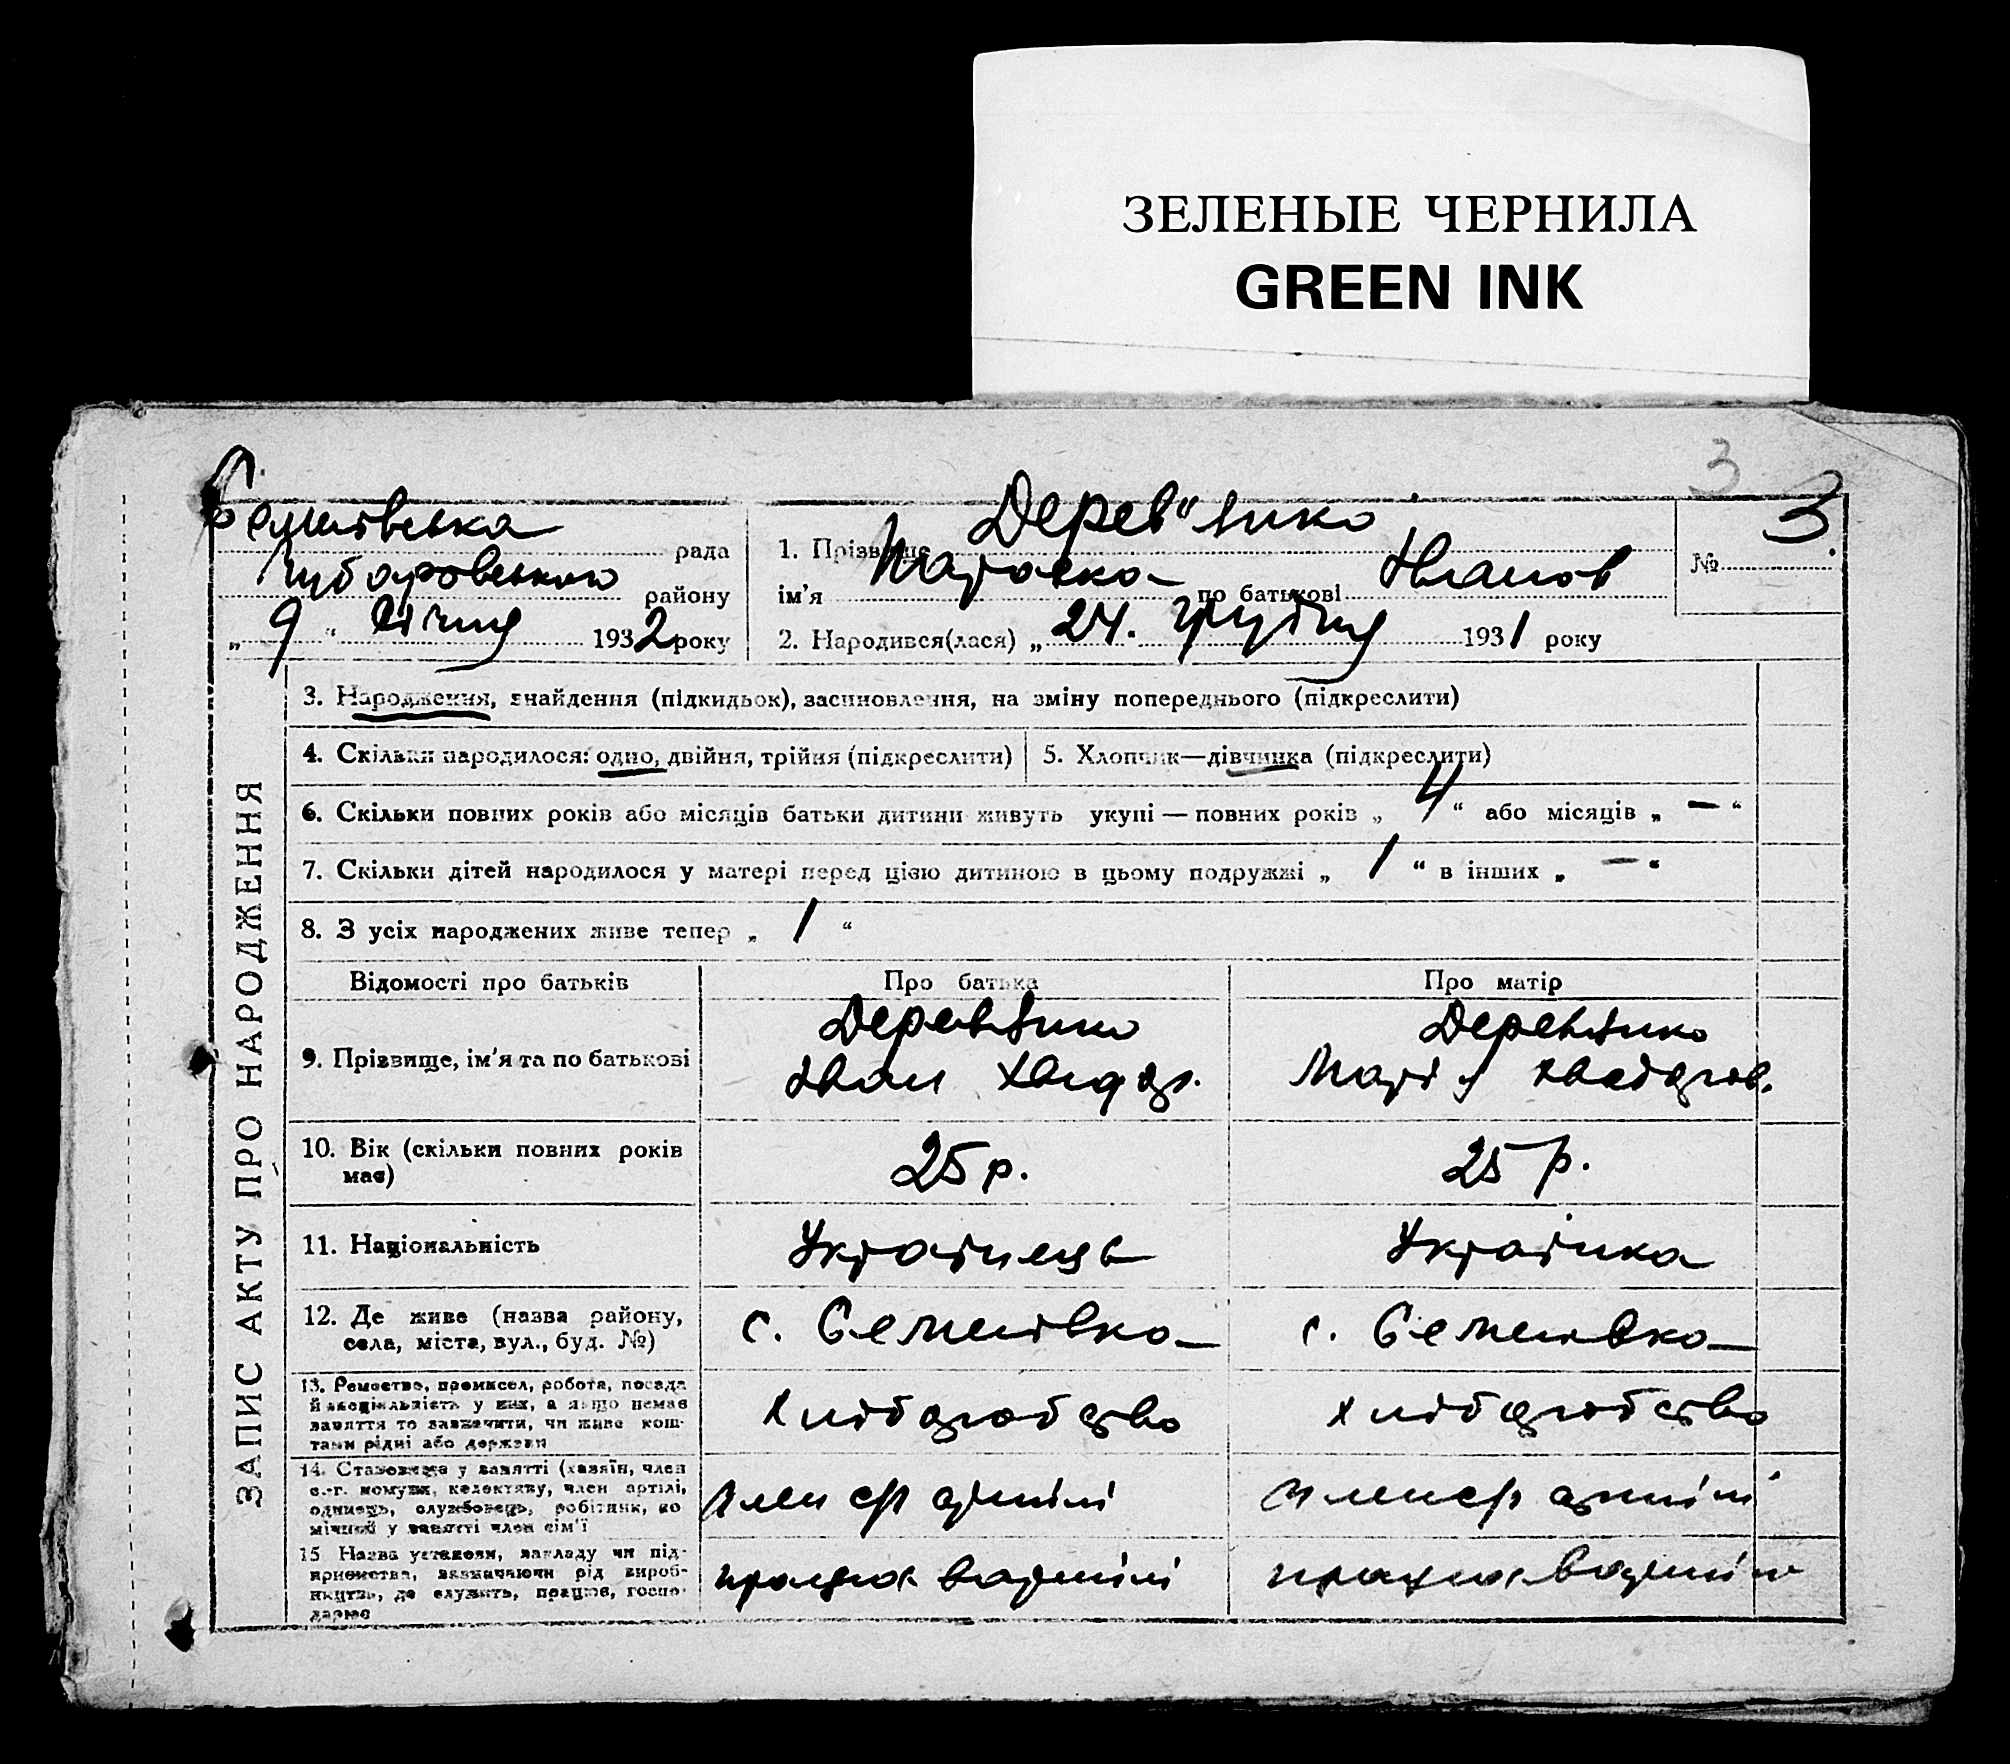 ЗЕЛЕНЫЕ ЧЕРНИЛА
GREEN INK
3
3
Семенівська рада
Чубаровського району
„ 9 “ січня 1932 року
1. Прізвище Дерев"янко
ім'я по батькові Іванов
№
2. Народився(лася) „ 24. грудня 1931 року
ЗАПИС АКТУ ПРО НАРОДЖЕННЯ
3. Народження, знайдення (підкидьок), засиновлення, на зміну попереднього (підкреслити)
4. Скільки народилося: одно, двійня, трійня (підкреслити)
5. Хлопчик—дівчинка (підкреслити)
6. Скільки повних років або місяців батьки дитини живуть укупі — повних років „ 4 “ або місяців „ — “
7. Скільки дітей народилося у матері перед цією дитиною в цьому подружжі „ 1 “ в інших „ — “
8. З усіх народжених живе тепер „ 1 “
Відомості про батьків
Про батька
Про матір
9. Прізвище, ім'я та по батькові
Деревянко
Іван
Деревянко
Марія
10. Вік (скільки повних років
має)
25 р.
25 р.
11. Національність
Українець
Українка
12. Де живе (назва району,
села, міста, вул., буд. №)
с. Семенівка
с. Семенівка
13. Ремество, промисел, робота, посада
й спеціяльність у них, а якщо немає
заняття то зазначити, чи живе кош-
тами рідні або держави
хліборобство
хліборобство
14. Становище у занятті (хазяїн, член
с.-г. комуни, колективу, член артілі,
одинець, службовець, робітник, по
мічний у занятті член сім'ї
член с/г артілі
член с/г артілі
15 Назва установи, закладу чи під-
приємства, зазначаючи рід вироб-
ництва, де служить, працює, госпо-
дарює
працює в артілі
працює в артілі